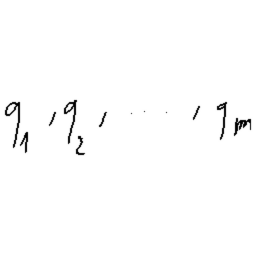 q₁, q₂, ..., qₘ